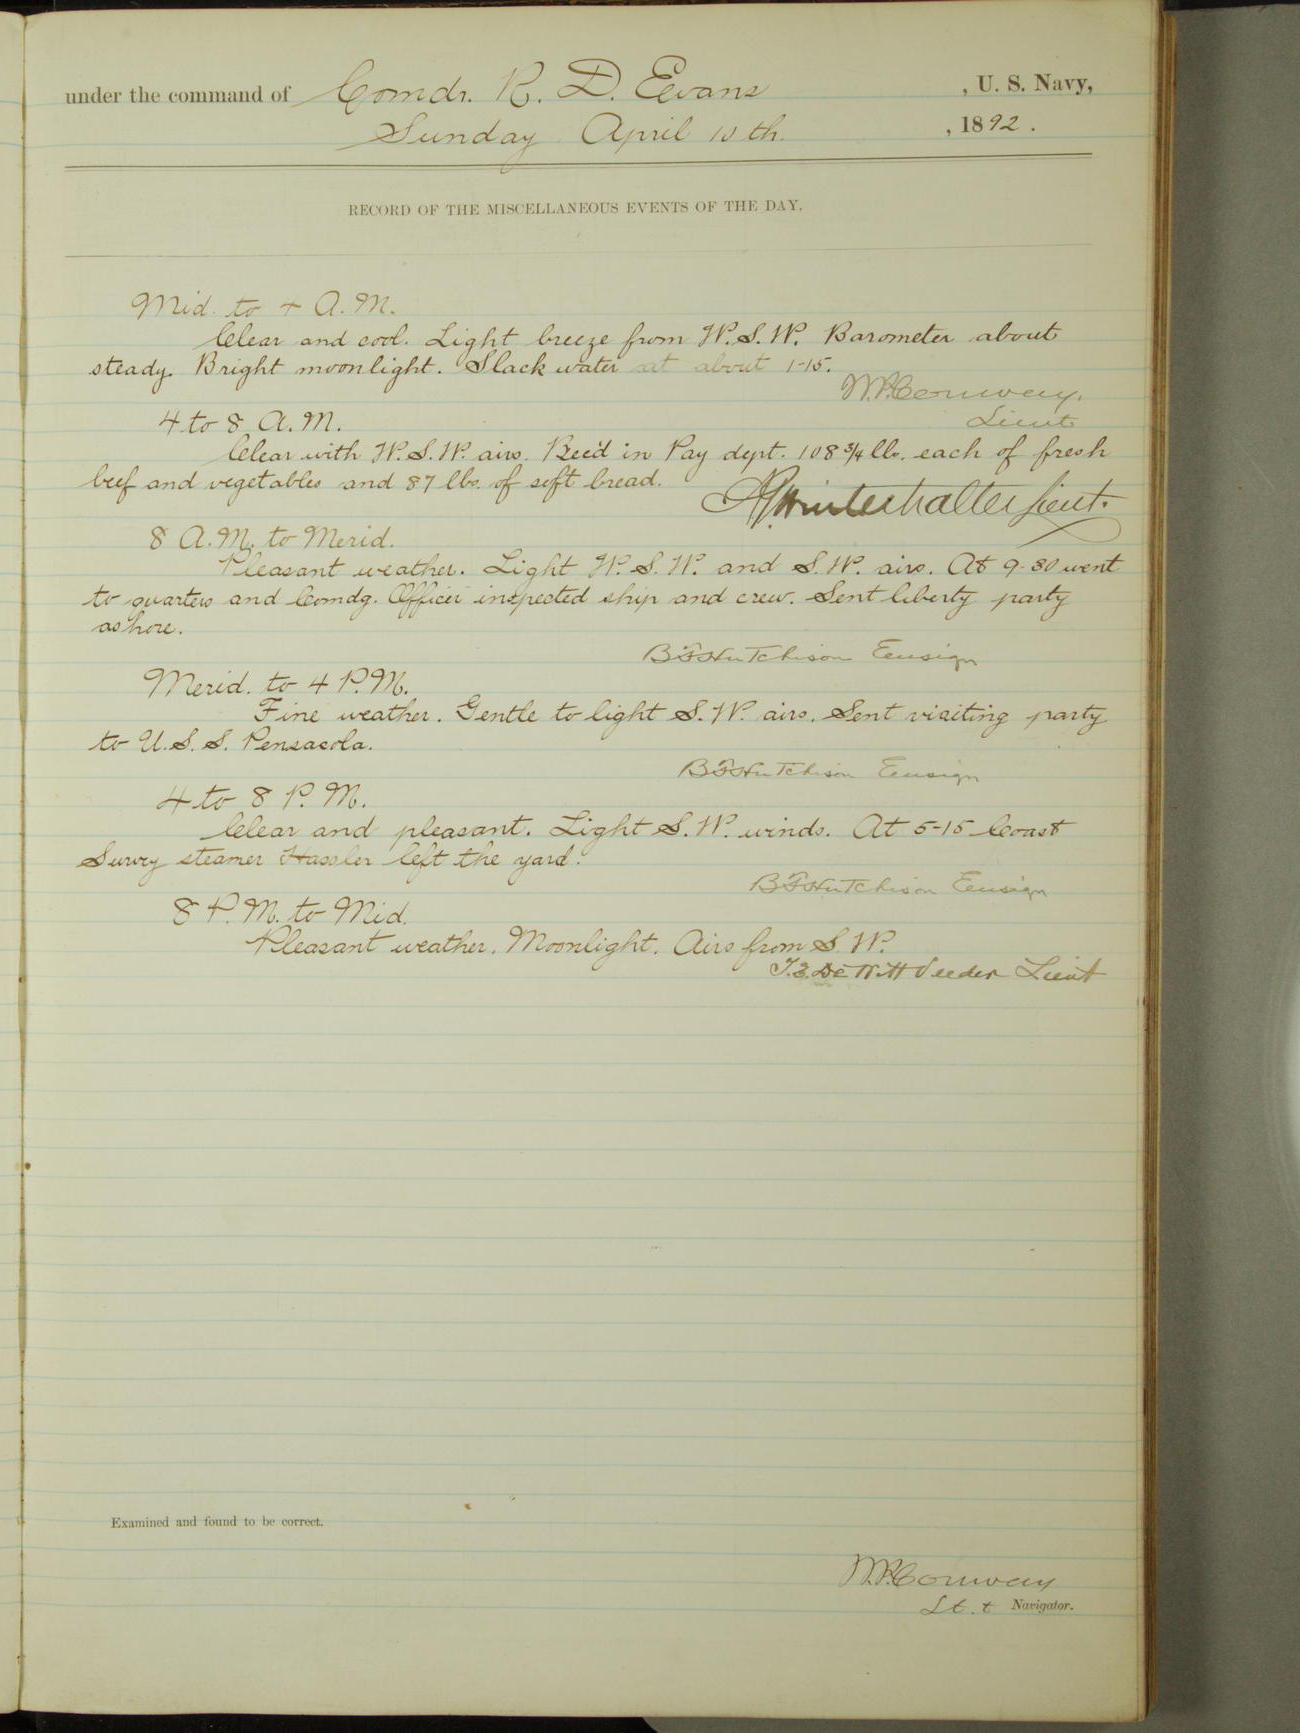 under the command of Comdr. R. D. Evans , U. S. Navy,
Sunday April 10th. , 1892.
RECORD OF THE MISCELLANEOUS EVENTS OF THE DAY.
Mid. to 4 A.M.
Clear and cool. Light breeze from W.S.W. Barometer about
steady. Bright moonlight. Slack water at about 1-15.
W.P. Conway,
Lieut
4 to 8 A.M.
Clear with W.S.W. airs. Rec'd in Pay dept. 108 3/4 lbs. each of fresh
beef and vegetables and 87 lbs. of soft bread.
A.G. Winterhalter Lieut.
8 A.M. to Merid.
Pleasant weather. Light W.S.W. and S.W. airs. At 9-30 went
to quarters and Comdg. Officer inspected ship and crew. Sent liberty party
ashore.
B F Hutchison Ensign
Merid. to 4 P.M.
Fine weather. Gentle to light S.W. airs. Sent visiting party
to U.S.S. Pensacola.
B F Hutchison Ensign
4 to 8 P.M.
Clear and pleasant. Light S.W. winds. At 5-15 Coast
Survey steamer Hassler left the yard.
B F Hutchison Ensign
8 P.M. to Mid.
Pleasant weather. Moonlight. Airs from S.W.
T.E. DeWitt Veeder Lieut
Examined and found to be correct.
W.P. Conway
Lt. & Navigator.